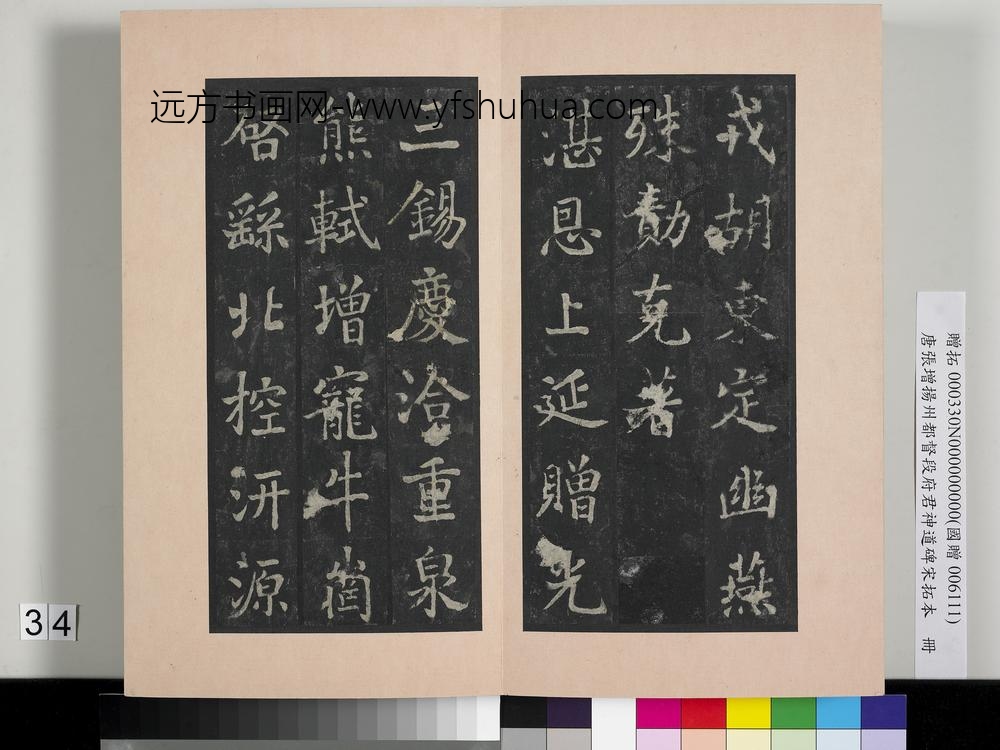 远方书画网-www.yfshuhua.com
戎胡東定幽燕
殊勣克著
湛恩上延贈光
三錫慶洽重泉
熊軾增寵牛崗
啓繇北控汧源
贈拓 000330N000000000(國贈 006111)
唐張增揚州都督段府君神道碑宋拓本 冊
34